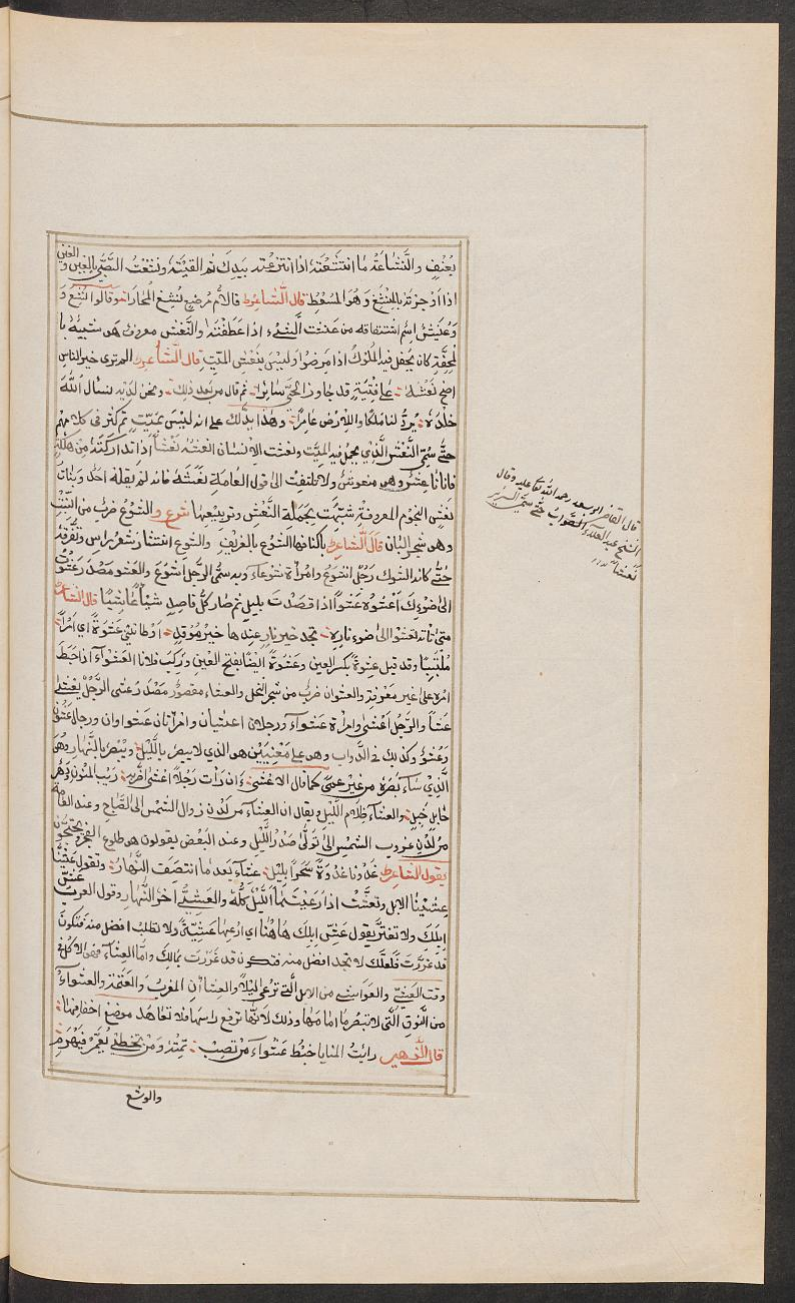 بعنف والنشاغة ما انتشغته اذا انتزعته بيدك ثم القيته ونشغت الصبي بالعين والغين
اذا اوجرته بالمنشغ وهو المسعط قال الشاعر فالأم مرضع نشغ المحارا وقالوا نشع و
معروف هو شبيه با
لمحفة كان يحمل فيه الملوك اذا مرضوا وليس بنعش الميت قال الشاعر الم تر خير الناس
اضحى نعشه على فتية قد جاوز الحي سائرا ثم قال من بعد ذلك ونحن لديه نسأل الله
خلده يرد لنا ملكا وللارض عامرا وهذا يدلك على انه ليس بميت ثم كثر في كلامهم
حتى سمي النعش الذي يحمل فيه الميت ونعشت الانسان انعشه نعشا اذا تداركته من هلكة
فانا ناعش وهو منعوش ولا تلتفت الى قول العامة نعشه فانه لم يقله احد وبنات
نعش النجوم المعروفة شبهت بحملة النعش وتربيعها شوع والشوع ضرب من النبت
وهو شجر البان قال الشاعر باكنافها الشوع والغريف والشوع انتشار شعر الراس وتفرقه
حتى كانه الشوك رجل اشوع وامراة شوعاء وبه سمى الرجل اشوع والعشو مصدر عشوت
الى ضوءك اعشوه عشوا اذا قصدت بليل ثم صار كل قاصد شيئا عاشيا قال الشاعر
متى تاته تعشو الى ضوء ناره تجد خير نار عندها خير موقد اوطأتني عشوة اي امرا
ملتبسا وقد قيل عشوة بكسر العين وعشوة ايضا بفتح العين وركب فلان العشواء اذا خبط
امره على غير معرفة والعشوان ضرب من شجر النخل والعشاء مقصور مصدر عشي الرجل يعشى
عشا والرجل اعشى وامراة عشواء ورجلان اعشيان وامراتان عشواوان ورجال عشو
وعشو وكذلك في الدواب وهو على معنيين هو الذي لا يبصر بالليل ويبصر بالنهار وهو
الذي ساء بصره من غير عمى كما قال الاعشى ءان رات رجلا اعشى اضر به ريب المنون ودهر
خابل خبل والعشاء ظلام الليل ويقال ان العشاء من لدن زوال الشمس الى الصباح وعند العامة
من لدن غروب الشمس الى تولى صدر الليل وعند البعض يقولون هو طلوع الفجر ويحتجون
بقول الشاعر غدونا غدوة سحرا بليل عشاء بعد ما انتصف النهار وتقول عشينا
عشينا الابل وتعشت اذا رعيتها الليل كله والعشي آخر النهار وقول العرب عش
ابلك ولا تغتر يقول عش ابلك هاهنا اي ارعها عشية ولا تطلب افضل منه فتكون
قد غررت فلعلك لا تجد افضل منه فتكون قد غررت بمالك واما العشاء فهو الاكل في
وقت العشي والعواشي من الابل التي ترعى ليلا والعشاآن المغرب والعتمة والعشواء
من النوق التي لا تبصر ما امامها وذلك لانها ترفع راسها فلا تعاهد موضع اخفافها
قال زهير رايت المنايا خبط عشواء من تصب تمته ومن تخطئ يعمر فيهرم
والوشع
قال القاضي ابو سعيد رحمه الله تعالى عليه وقال
الشيخ عبد العلاء الصواب حتى سمي السرير
نعشا